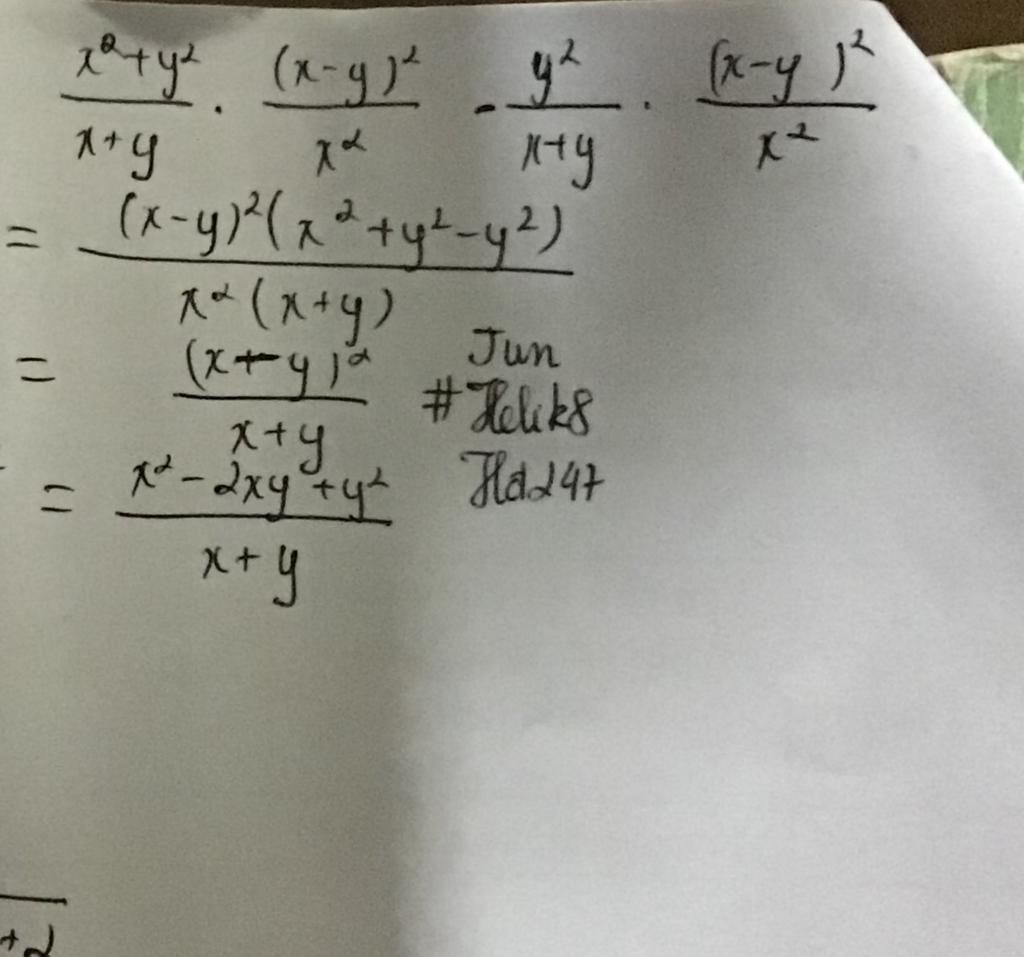 x²+y²/x+y · (x-y)²/x² - y²/x+y · (x-y)²/x²
= (x-y)²(x²+y²-y²)/x²(x+y)
= (x+y)²/x+y
Jun
#Helik8
= x²-2xy+y²/x+y
Hd247
+2